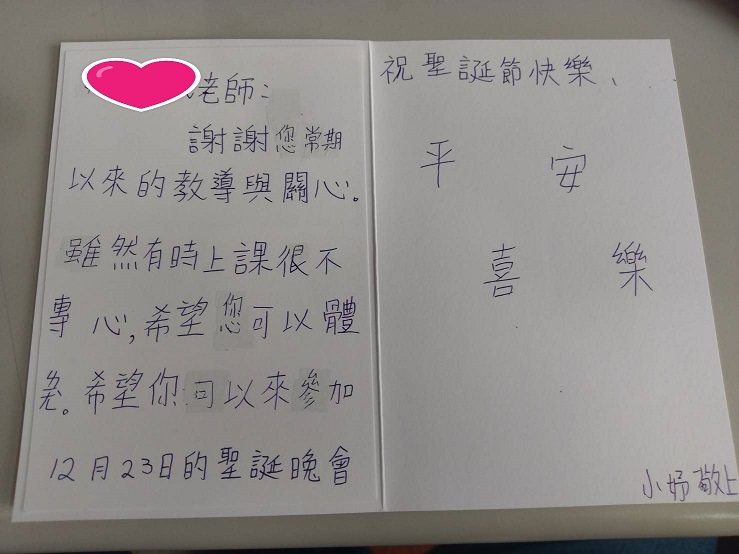 老師：
謝謝您常期
以來的教導與關心。
雖然有時上課很不
專心,希望您可以體
兔。希望你可以來參加
12月23日的聖誕晚會
祝聖誕節快樂、
平 安
喜 樂
小妤敬上